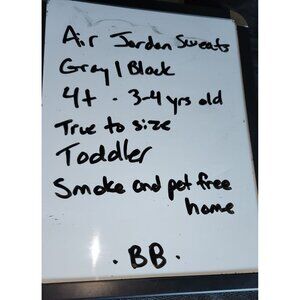 Air Jordan Sweats
Gray | Black
4t · 3-4 yrs old
True to size
Toddler
Smoke and pet free
home
· BB ·